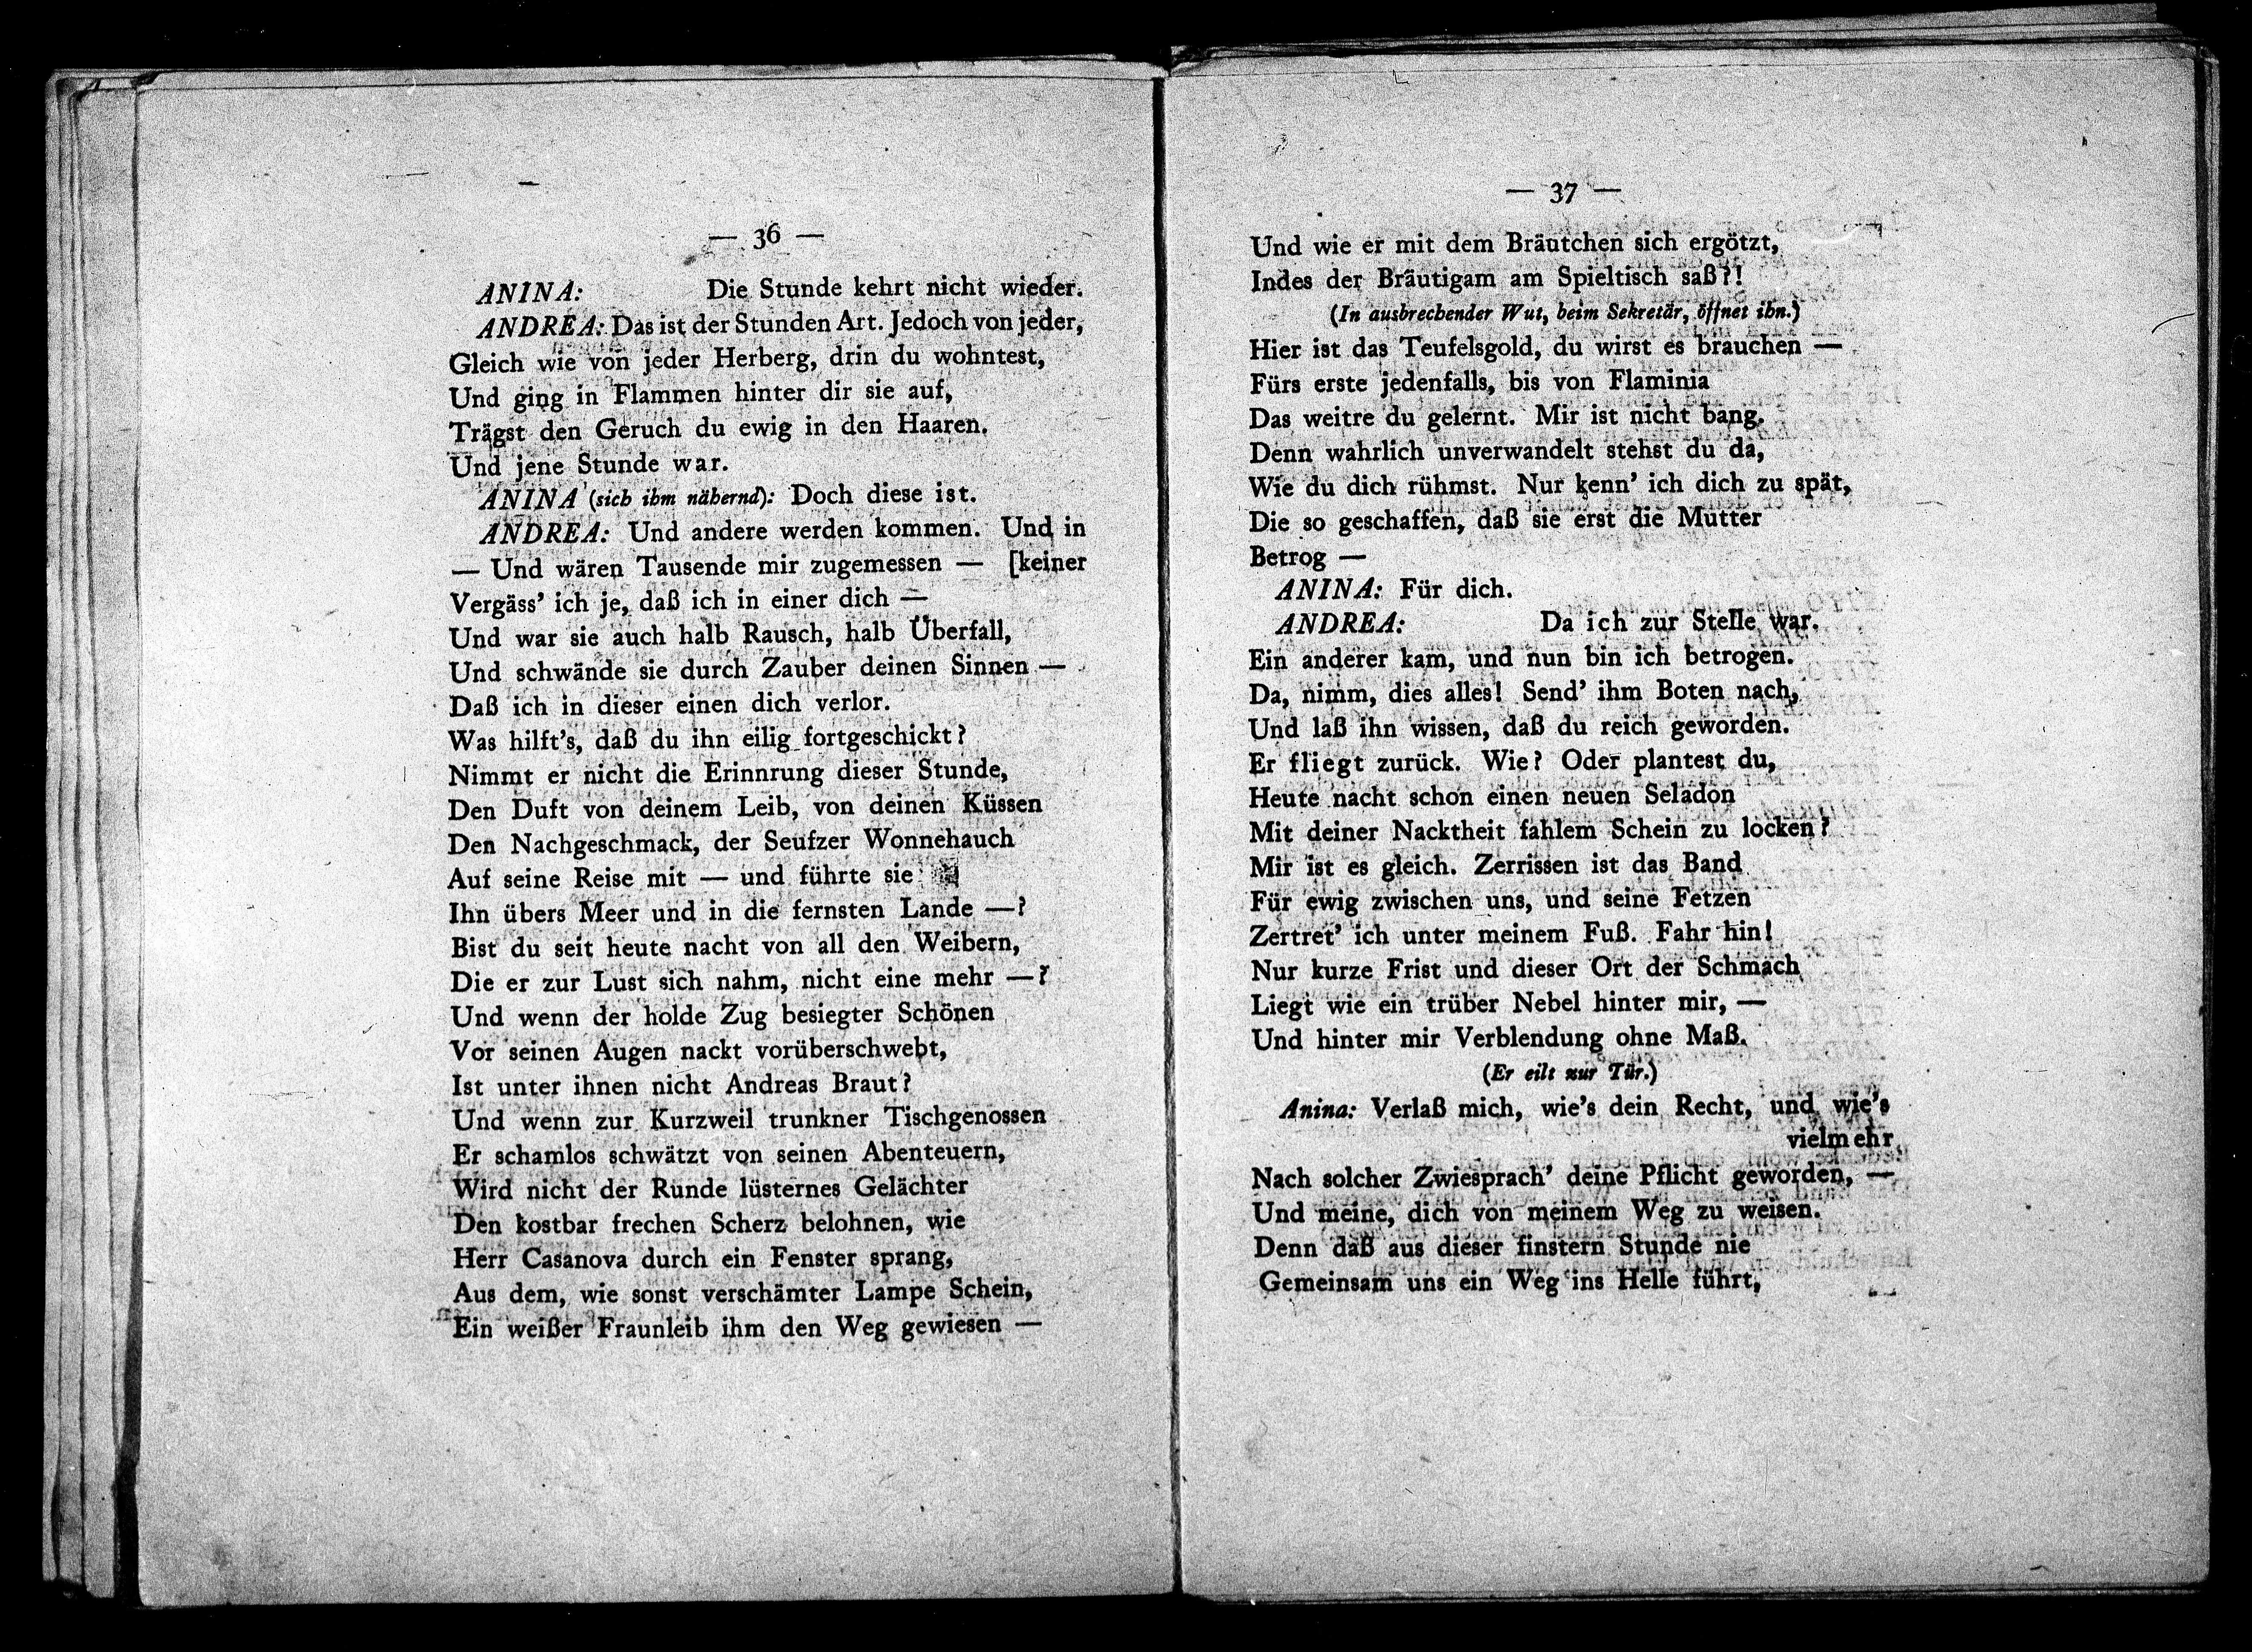 — 36 —
ANINA: Die Stunde kehrt nicht wieder.
ANDREA: Das ist der Stunden Art. Jedoch von jeder,
Gleich wie von jeder Herberg, drin du wohntest,
Und ging in Flammen hinter dir sie auf,
Trägst den Geruch du ewig in den Haaren.
Und jene Stunde war.
ANINA (sich ihm nähernd): Doch diese ist.
ANDREA: Und andere werden kommen. Und in
— Und wären Tausende mir zugemessen — [keiner
Vergäss' ich je, daß ich in einer dich —
Und war sie auch halb Rausch, halb Überfall,
Und schwände sie durch Zauber deinen Sinnen —
Daß ich in dieser einen dich verlor.
Was hilft's, daß du ihn eilig fortgeschickt?
Nimmt er nicht die Erinnrung dieser Stunde,
Den Duft von deinem Leib, von deinen Küssen
Den Nachgeschmack, der Seufzer Wonnehauch
Auf seine Reise mit — und führte sie
Ihn übers Meer und in die fernsten Lande —?
Bist du seit heute nacht von all den Weibern,
Die er zur Lust sich nahm, nicht eine mehr —?
Und wenn der holde Zug besiegter Schönen
Vor seinen Augen nackt vorüberschwebt,
Ist unter ihnen nicht Andreas Braut?
Und wenn zur Kurzweil trunkner Tischgenossen
Er schamlos schwätzt von seinen Abenteuern,
Wird nicht der Runde lüsternes Gelächter
Den kostbar frechen Scherz belohnen, wie
Herr Casanova durch ein Fenster sprang,
Aus dem, wie sonst verschämter Lampe Schein,
Ein weißer Fraunleib ihm den Weg gewiesen —
— 37 —
Und wie er mit dem Bräutchen sich ergötzt,
Indes der Bräutigam am Spieltisch saß?!
(In ausbrechender Wut, beim Sekretär, öffnet ihn.)
Hier ist das Teufelsgold, du wirst es brauchen —
Fürs erste jedenfalls, bis von Flaminia
Das weitre du gelernt. Mir ist nicht bang.
Denn wahrlich unverwandelt stehst du da,
Wie du dich rühmst. Nur kenn' ich dich zu spät,
Die so geschaffen, daß sie erst die Mutter
Betrog —
ANINA: Für dich.
ANDREA: Da ich zur Stelle war.
Ein anderer kam, und nun bin ich betrogen.
Da, nimm, dies alles! Send' ihm Boten nach,
Und laß ihn wissen, daß du reich geworden.
Er fliegt zurück. Wie? Oder plantest du,
Heute nacht schon einen neuen Seladon
Mit deiner Nacktheit fahlem Schein zu locken?
Mir ist es gleich. Zerrissen ist das Band
Für ewig zwischen uns, und seine Fetzen
Zertret' ich unter meinem Fuß. Fahr hin!
Nur kurze Frist und dieser Ort der Schmach
Liegt wie ein trüber Nebel hinter mir, —
Und hinter mir Verblendung ohne Maß.
(Er eilt zur Tür.)
Anina: Verlaß mich, wie's dein Recht, und wie's
vielmehr
Nach solcher Zwiesprach' deine Pflicht geworden, —
Und meine, dich von meinem Weg zu weisen.
Denn daß aus dieser finstern Stunde nie
Gemeinsam uns ein Weg ins Helle führt,